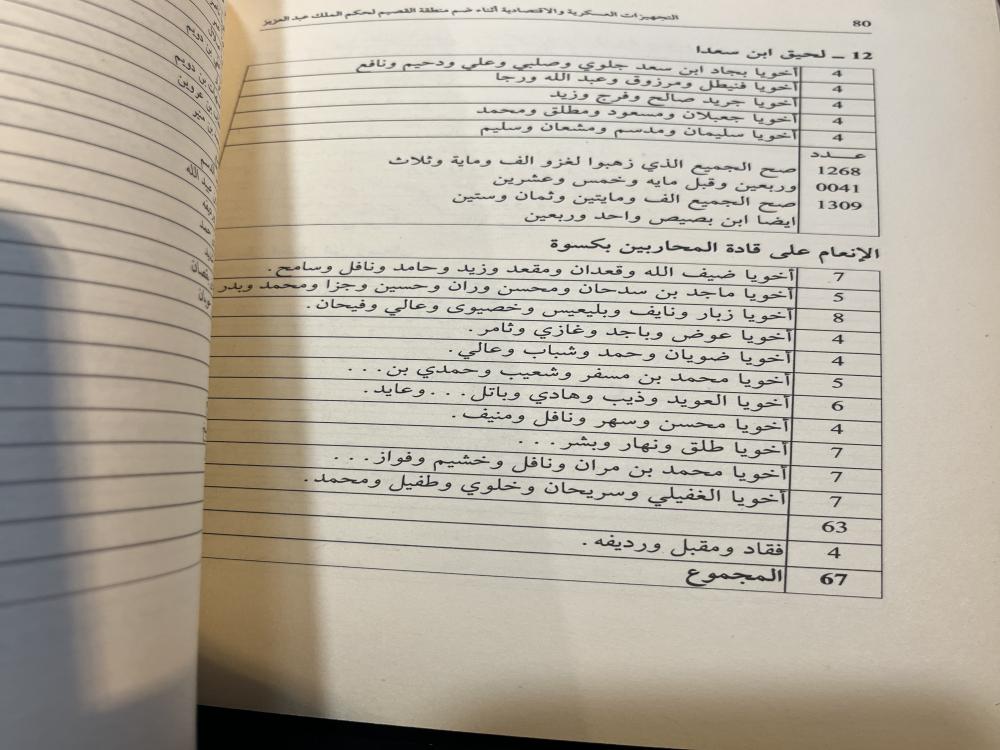 80
التجهيزات العسكرية والاقتصادية أثناء ضم منطقة القصيم لحكم الملك عبد العزيز
12 ــ لحيق ابن سعدا
4 آخويا بجاد ابن سعد جلوي وصلبي وعلي ودحيم ونافع
4 آخويا فنيطل ومرزوق وعبد الله ورجا
4 آخويا جريد صالح وفرج وزيد
4 آخويا جعيلان ومسعود ومطلق ومحمد
4 آخويا سليمان ومدسم ومشعان وسليم
عـــدد
1268 صح الجميع الذي زهبوا لغزو الف وماية وثلاث
0041 وربعين وقبل مايه وخمس وعشرين
1309 صح الجميع الف ومايتين وثمان وستين
ايضا ابن بصيص واحد وربعين
الإنعام على قادة المحاربين بكسوة
7 آخويا ضيف الله وقعدان ومقعد وزيد وحامد ونافل وسامح.
5 آخويا ماجد بن سدحان ومحسن وران وحسين وجزا ومحمد وبدر
8 آخويا زبار ونايف وبليعيس وخصيوى وعالي وفيحان.
4 آخويا عوض وباجد وغازي وثامر.
4 آخويا ضويان وحمد وشباب وعالي.
5 آخويا محمد بن مسفر وشعيب وحمدي بن...
6 آخويا العويد وذيب وهادي وباتل... وعايد.
4 آخويا محسن وسهر ونافل ومنيف.
7 آخويا طلق ونهار وبشر...
7 آخويا محمد بن مران ونافل وخشيم وفواز...
7 آخويا الغفيلي وسريحان وخلوي وطفيل ومحمد.
63
4 فقاد ومقبل ورديفه.
67 المجموع
بن دويم
بن دويم
عبد الله
حمد